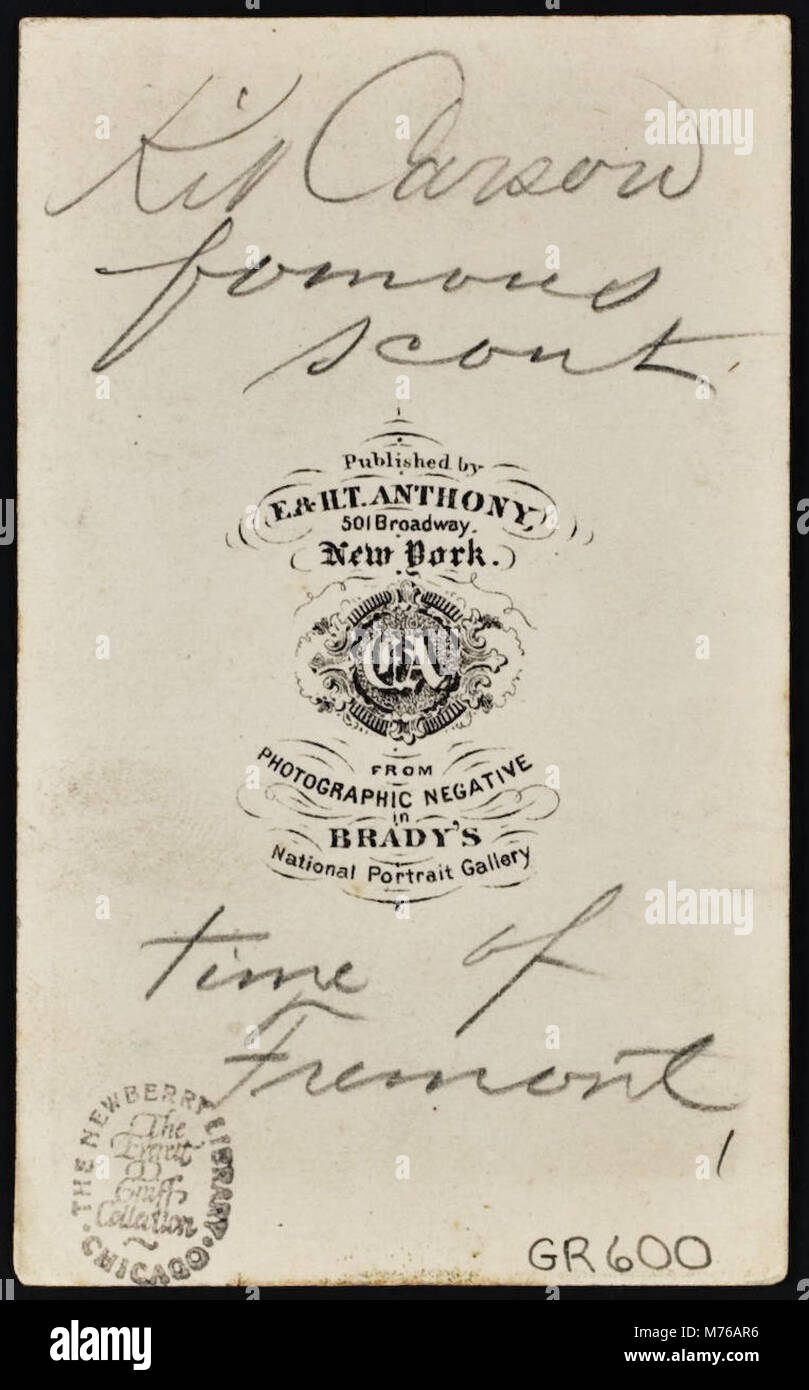 Kit Carson
famous
scout
Published by
E. & H.T. ANTHONY,
501 Broadway.
New York.
FROM
PHOTOGRAPHIC NEGATIVE
in
BRADY'S
National Portrait Gallery
time of
Fremont
THE NEWBERRY LIBRARY · CHICAGO ·
The
Everett
D
Graff
Collection
GR600
alamy
alamy
Image ID: M76AR6
www.alamy.com